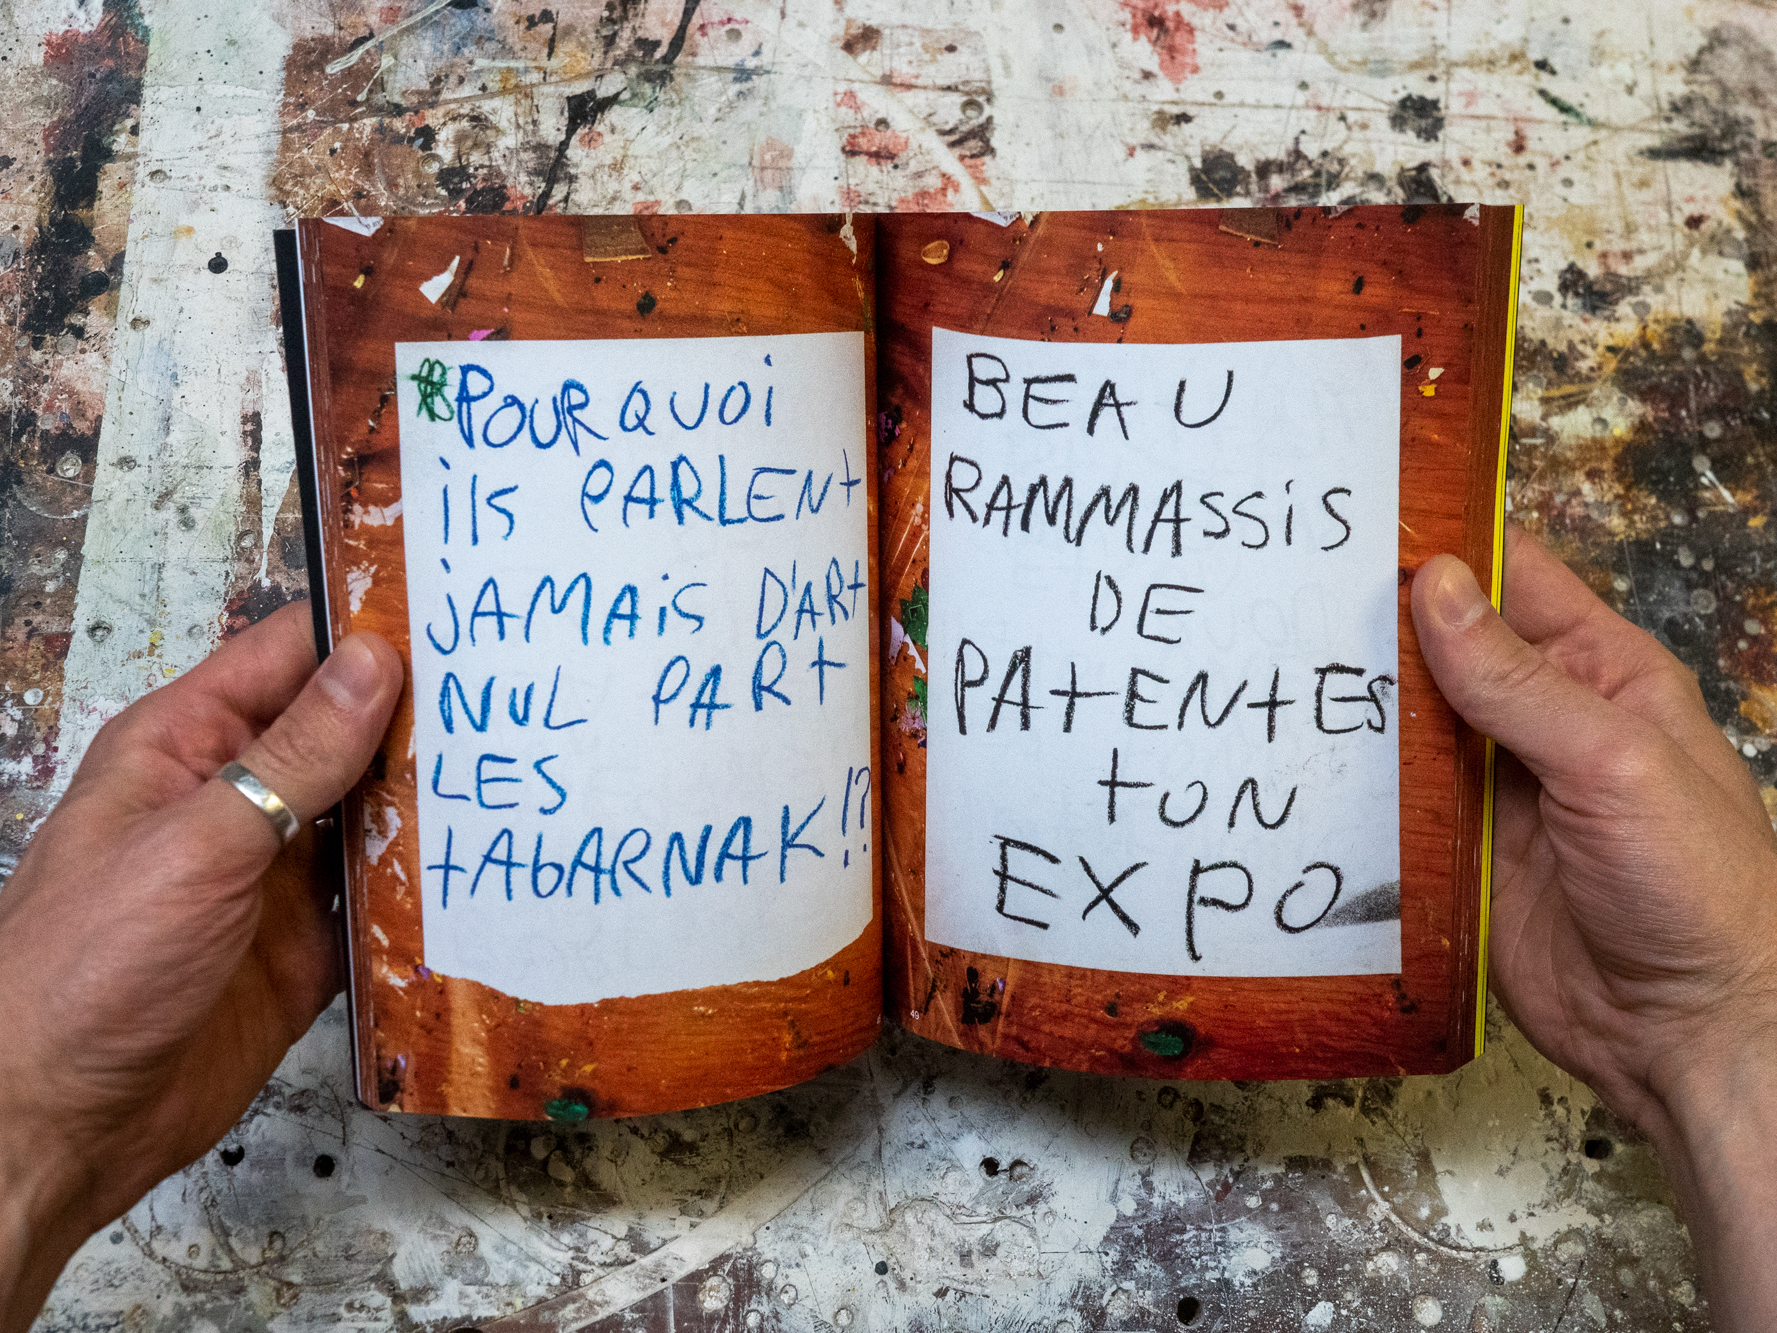 POURQUOI
ils PARLENt
jAMAiS D'ARt
NUL PARt
LES
tAbARNAK!?
BEAU
RAMMASSiS
DE
PAtENtES
tON
EXPO
49